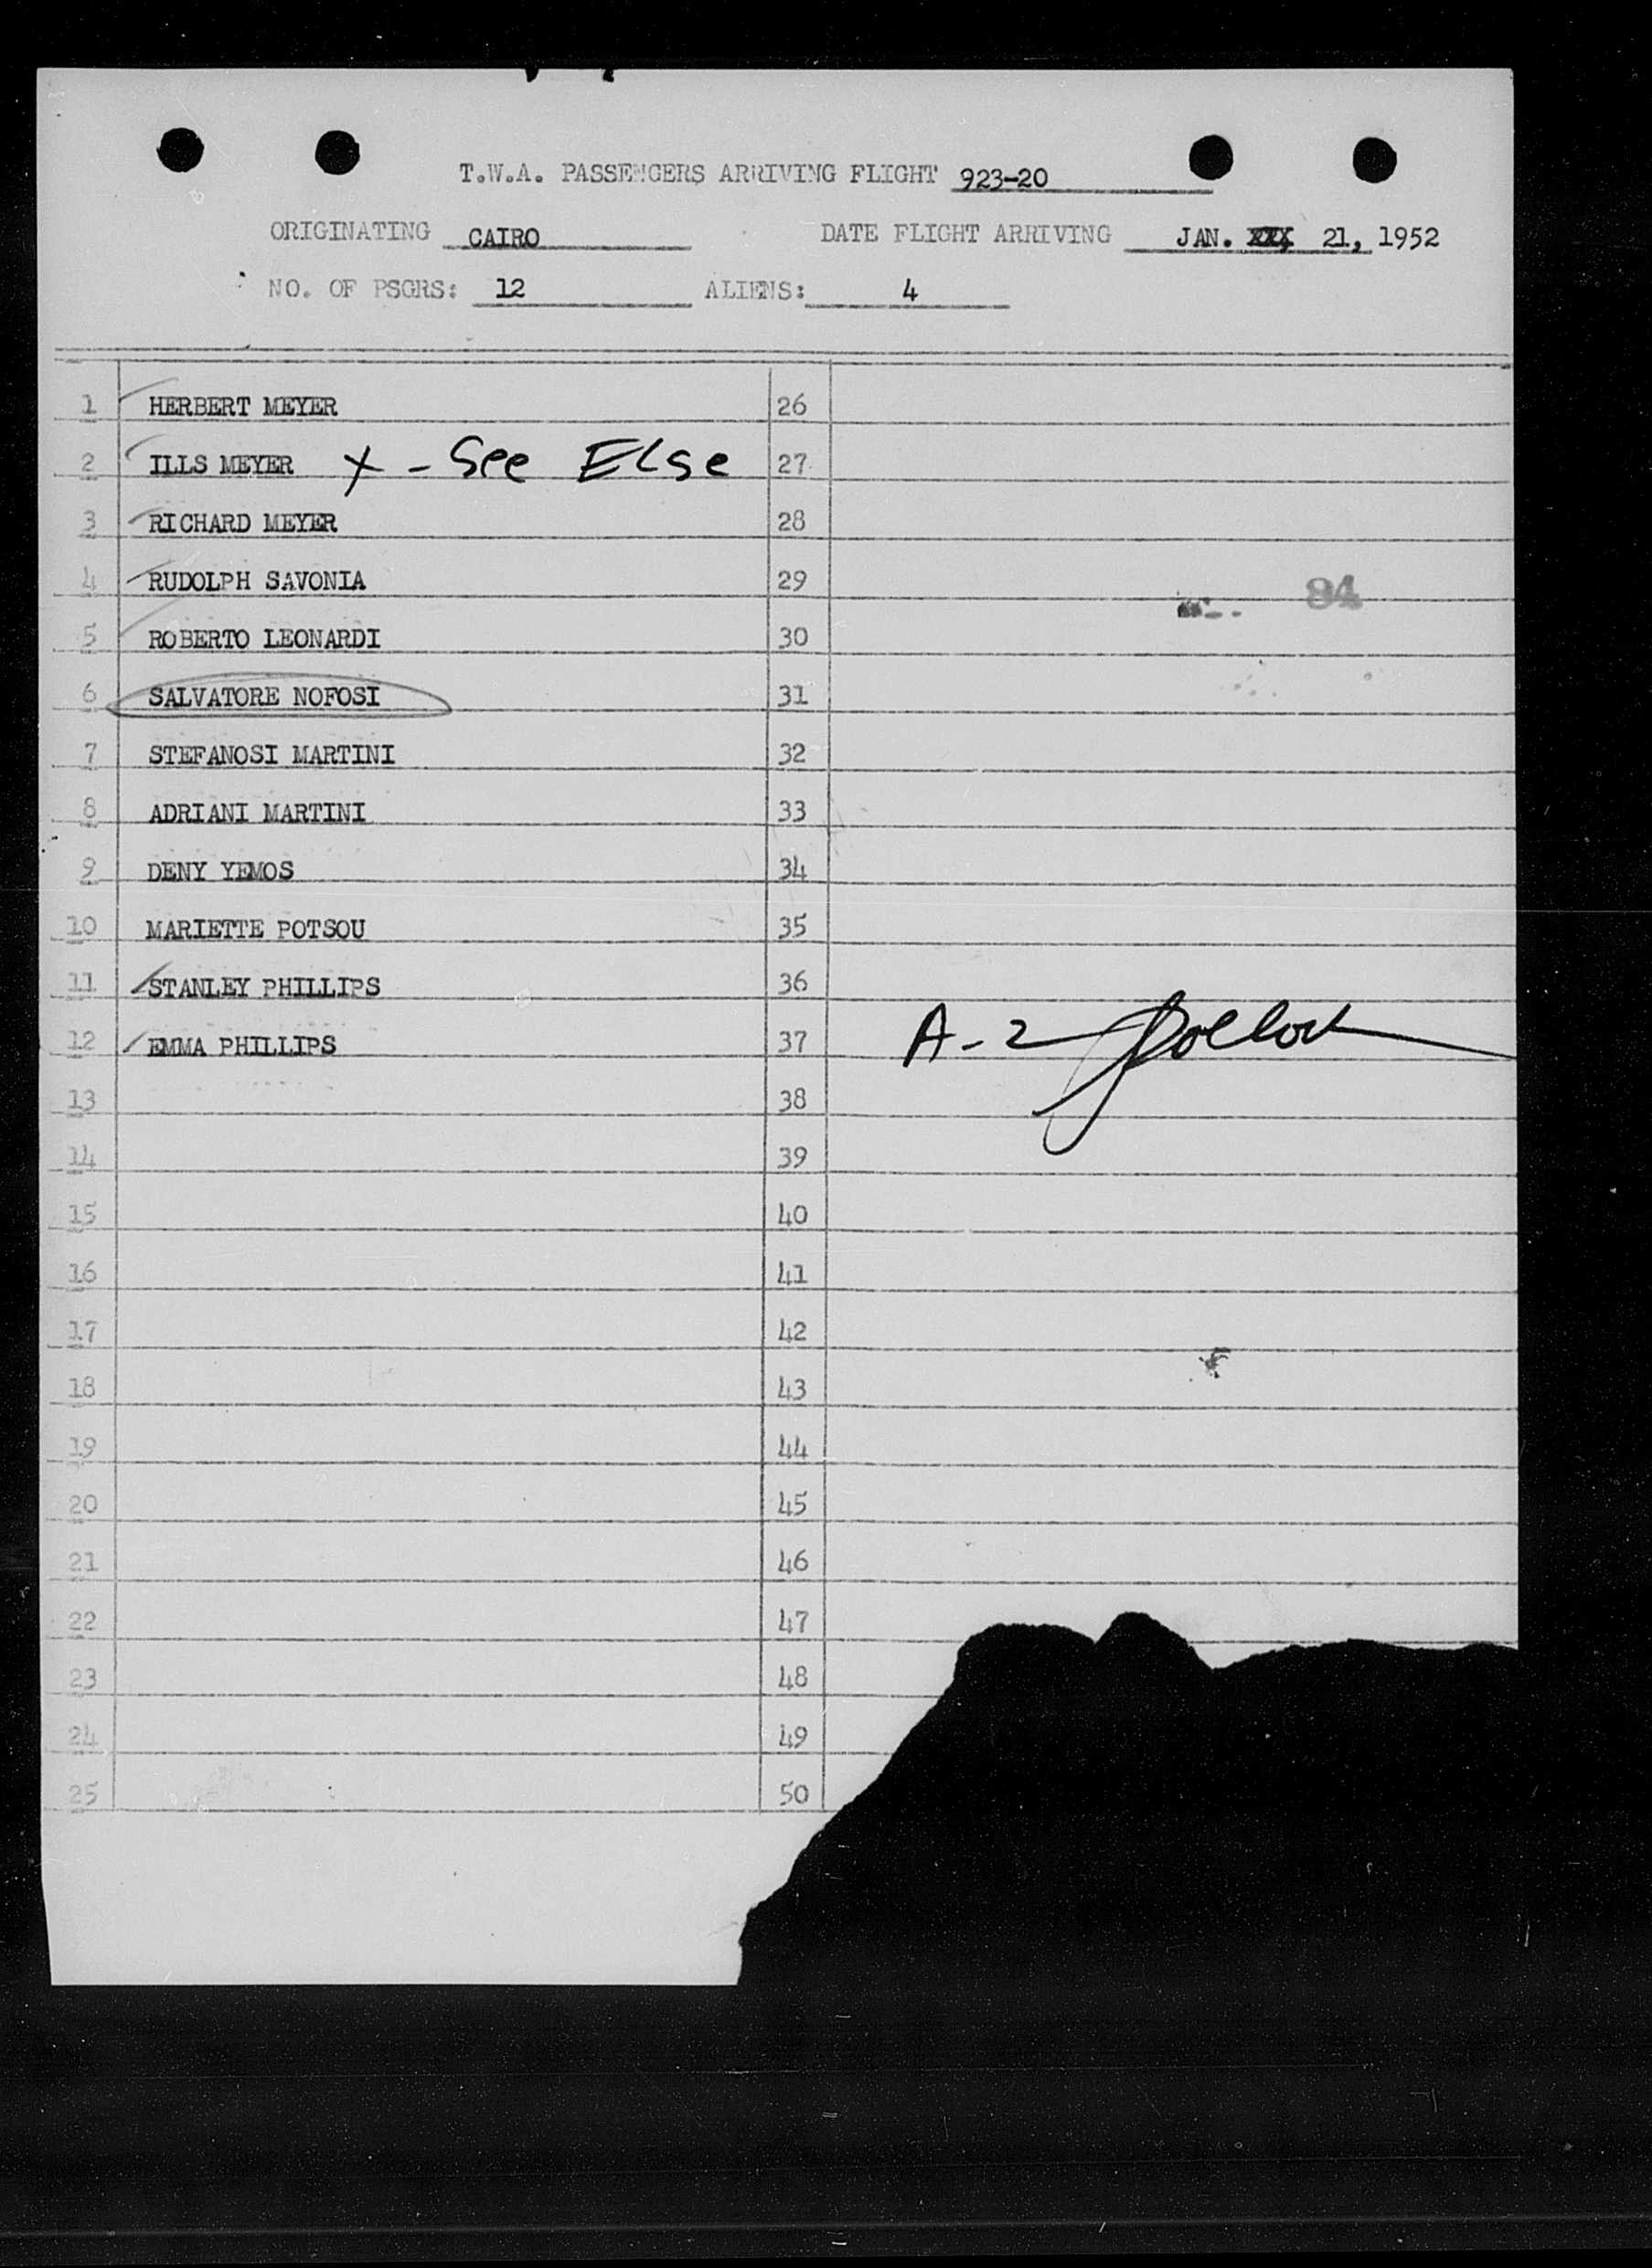 T.W.A. PASSENGERS ARRIVING FLIGHT 923-20
ORIGINATING CAIRO DATE FLIGHT ARRIVING JAN. XXX 21, 1952
NO. OF PSGRS: 12 ALIENS: 4
1 HERBERT MEYER 26
2 ILLS MEYER X - See ELse 27
3 RICHARD MEYER 28
4 RUDOLPH SAVONIA 29
84
5 ROBERTO LEONARDI 30
6 SALVATORE NOFOSI 31
7 STEFANOSI MARTINI 32
8 ADRIANI MARTINI 33
9 DENY YEMOS 34
10 MARIETTE POTSOU 35
11 STANLEY PHILLIPS 36
12 EMMA PHILLIPS 37 A-2
13 38
14 39
15 40
16 41
17 42
18 43
19 44
20 45
21 46
22 47
23 48
24 49
25 50